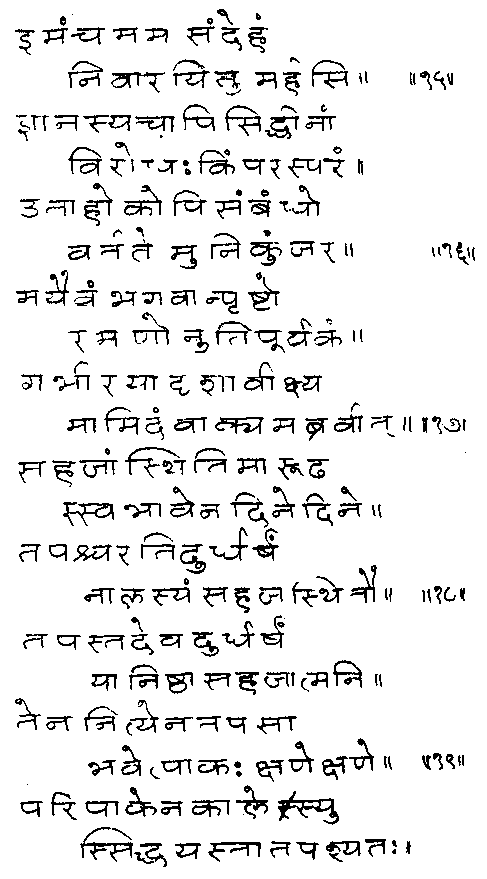 इमंच मम संदेहं
निवारयितु मर्हसि॥ ॥१५॥
ज्ञानस्यचापि सिद्धीनां
विरोधः किं परस्परं॥
उताहो कोपि संबंधो
वर्तते मुनिकुंजर॥ ॥१६॥
मयैवं भगवान्पृष्टो
रमणो नुतिपूर्वकं॥
गभीरयादृशावीक्ष्य
मामिदं वाक्यमब्रवीत्॥ ॥१७॥
सहजां स्थितिमारूढ
स्स्वभावेन दिनेदिने॥
तपश्चरतिदुर्धर्षं
नालस्यं सहजस्थितौ॥ ॥१८॥
तपस्तदेव दुर्धर्षं
यानिष्ठासहजात्मनि॥
तेन नित्येन तपसा
भवेत्पाकः क्षणेक्षणे॥ ॥१९॥
परिपाकेन काले स्यु
स्सिद्धयस्तात पश्यतः।